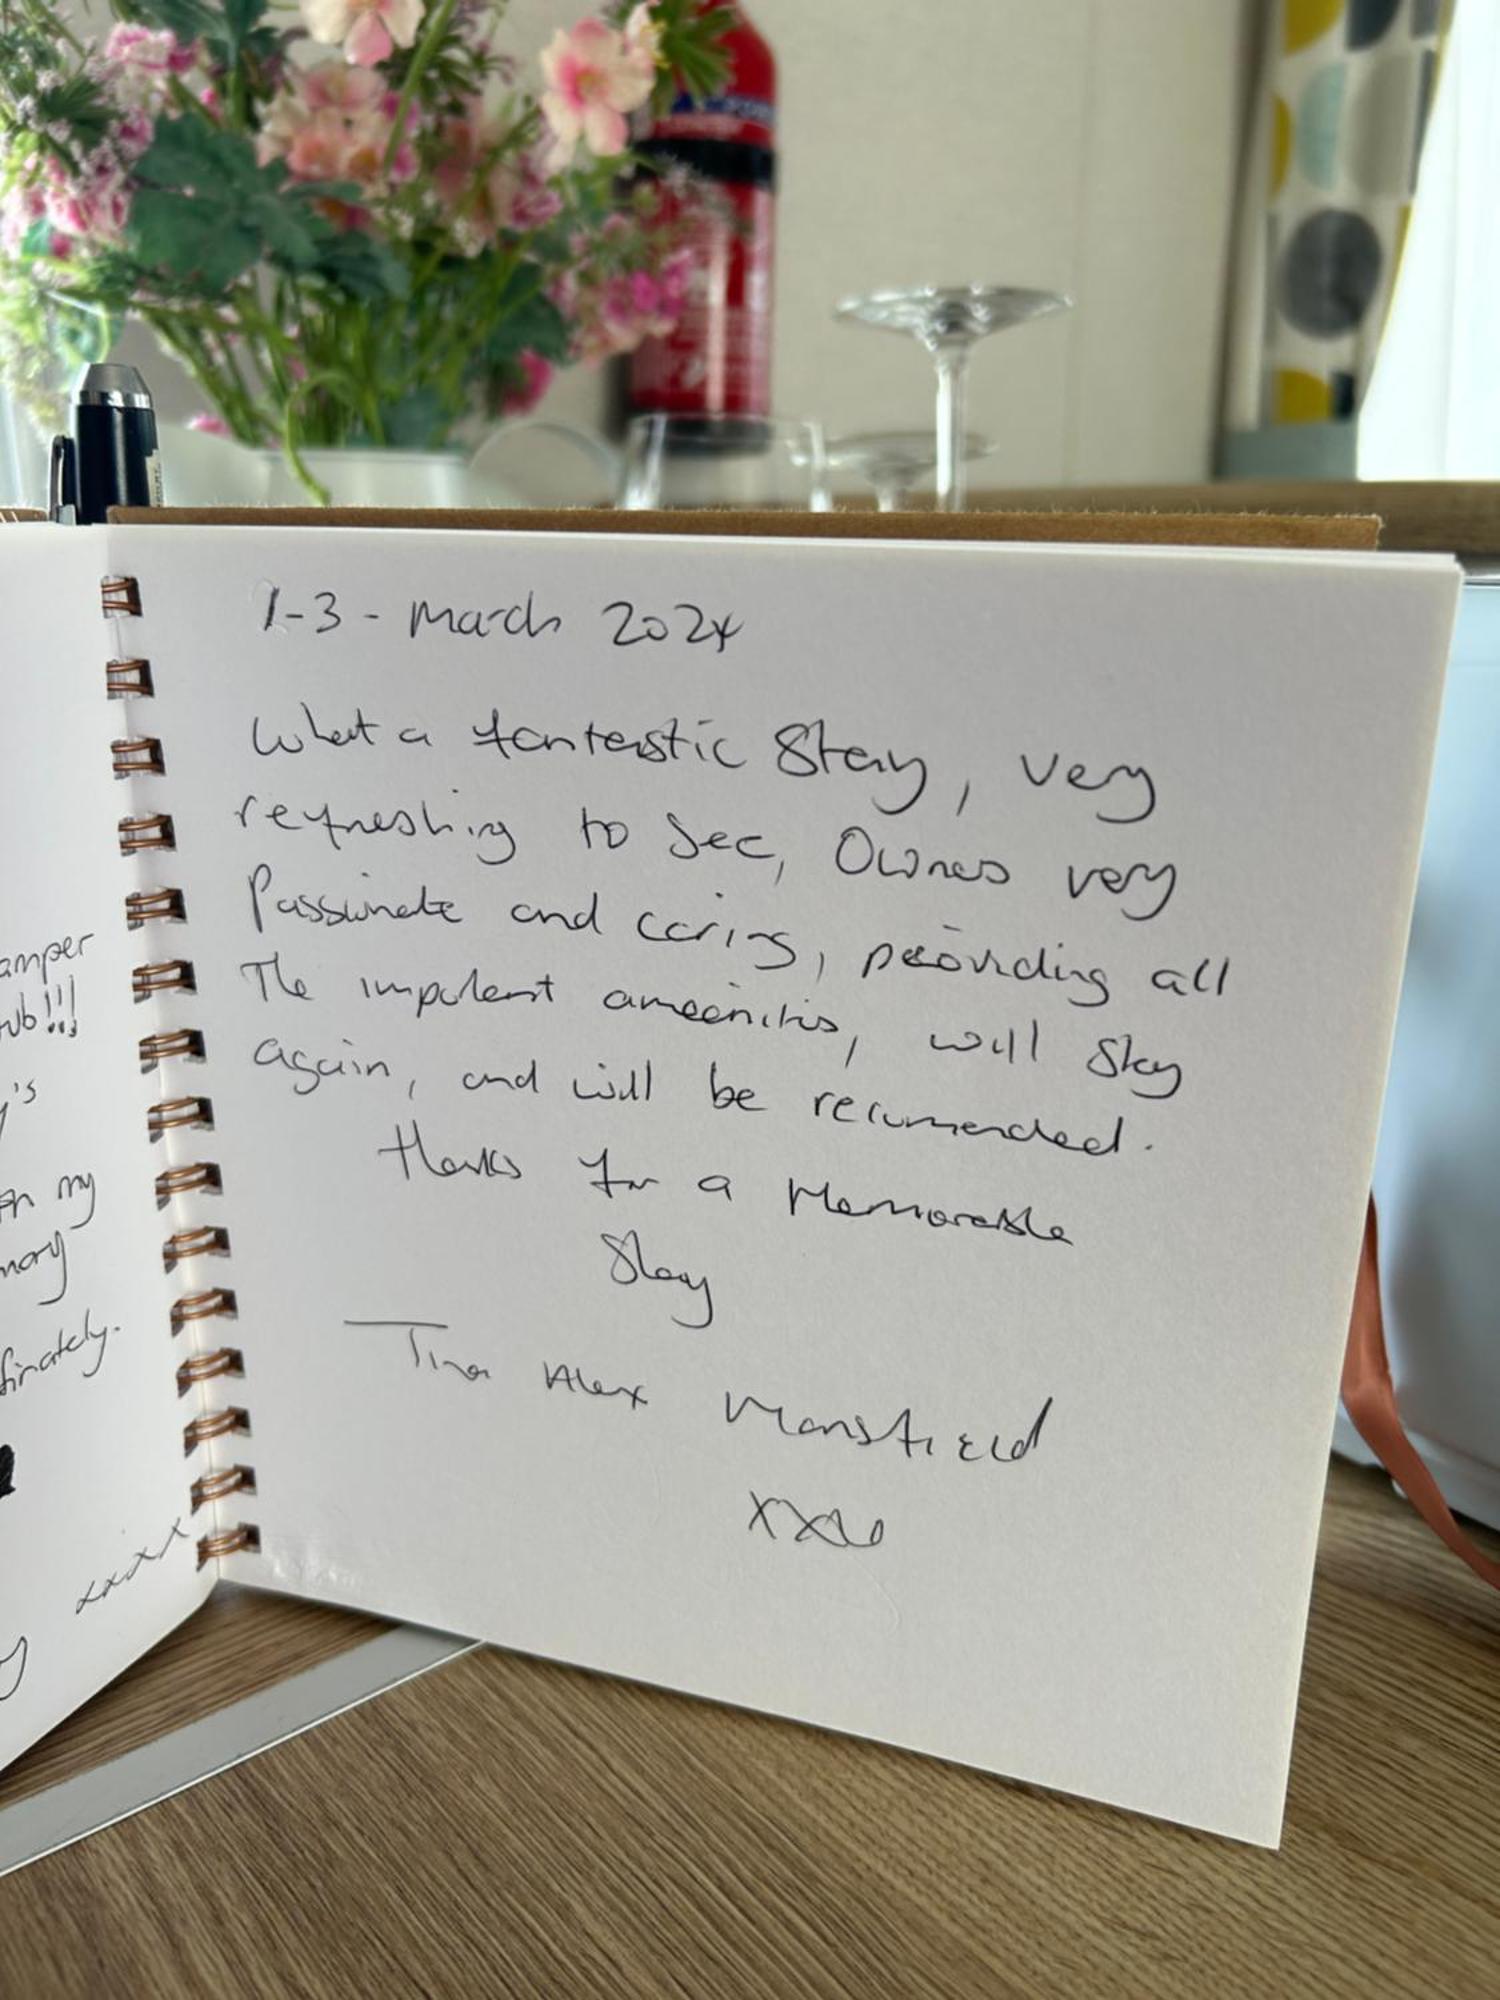 1-3 - March 2024
What a fantastic Stay, very
refreshing to see, Owners very
Passionate and caring, providing all
The important ameenities, will stay
again, and will be recumended.
thanks for a Memorable
Stay
Tina Alex Mansfield
xxx
amper
tub!!!
y's
my
finately.
xxxx